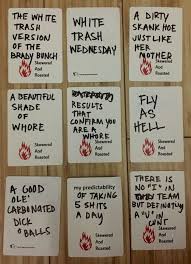 THE WHITE
TRASH
VERSION
OF THE
BRADY BUNCH
Skewered
And
Roasted
WHITE
TRASH
WEDNESDAY
A DIRTY
SKANK HOE
JUST LIKE
HER
MOTHER
Skewered
And
Roasted
A BEAUTIFUL
SHADE
OF
WHORE
Skewered
And
Roasted
RESULTS
THAT
CONFIRM YOU
ARE A
WHORE
Skewered
And
Roasted
FLY
AS
HELL
Skewered
And
Roasted
A GOOD
OLE'
CARBONATED
DICK
O' BALLS
my predictability
OF TAKING
5 SHITS
A DAY
Skewered
And
Roasted
THERE IS
NO "I" IN
TEAM
BUT DEFINITLY
A "U" IN
CUNT
Skewered
And
Roasted